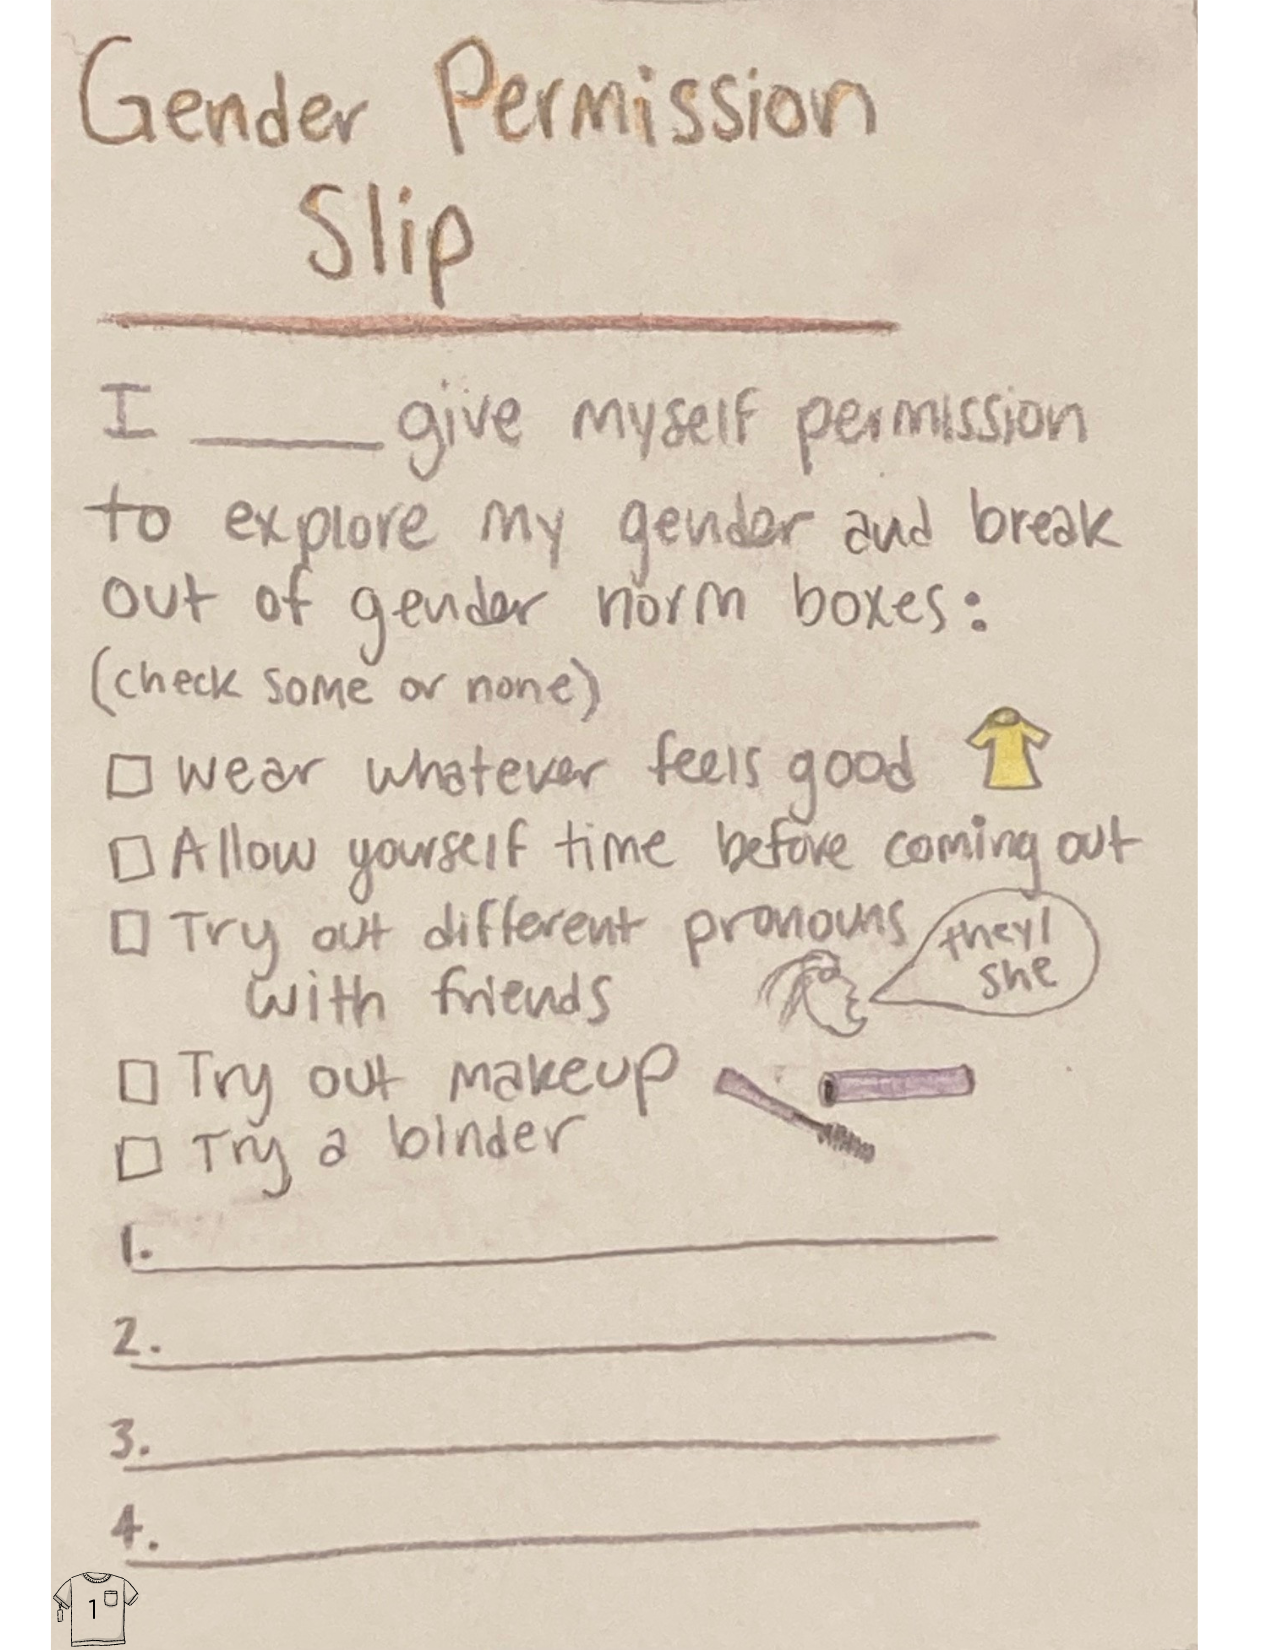 Gender Permission
Slip
I ____ give myself permission
to explore my gender and break
out of gender norm boxes:
(check some or none)
☐ Wear whatever feels good
☐ Allow yourself time before coming out
☐ Try out different pronouns
with friends
they/
she
☐ Try out makeup
☐ Try a binder
1.
2.
3.
4.
1